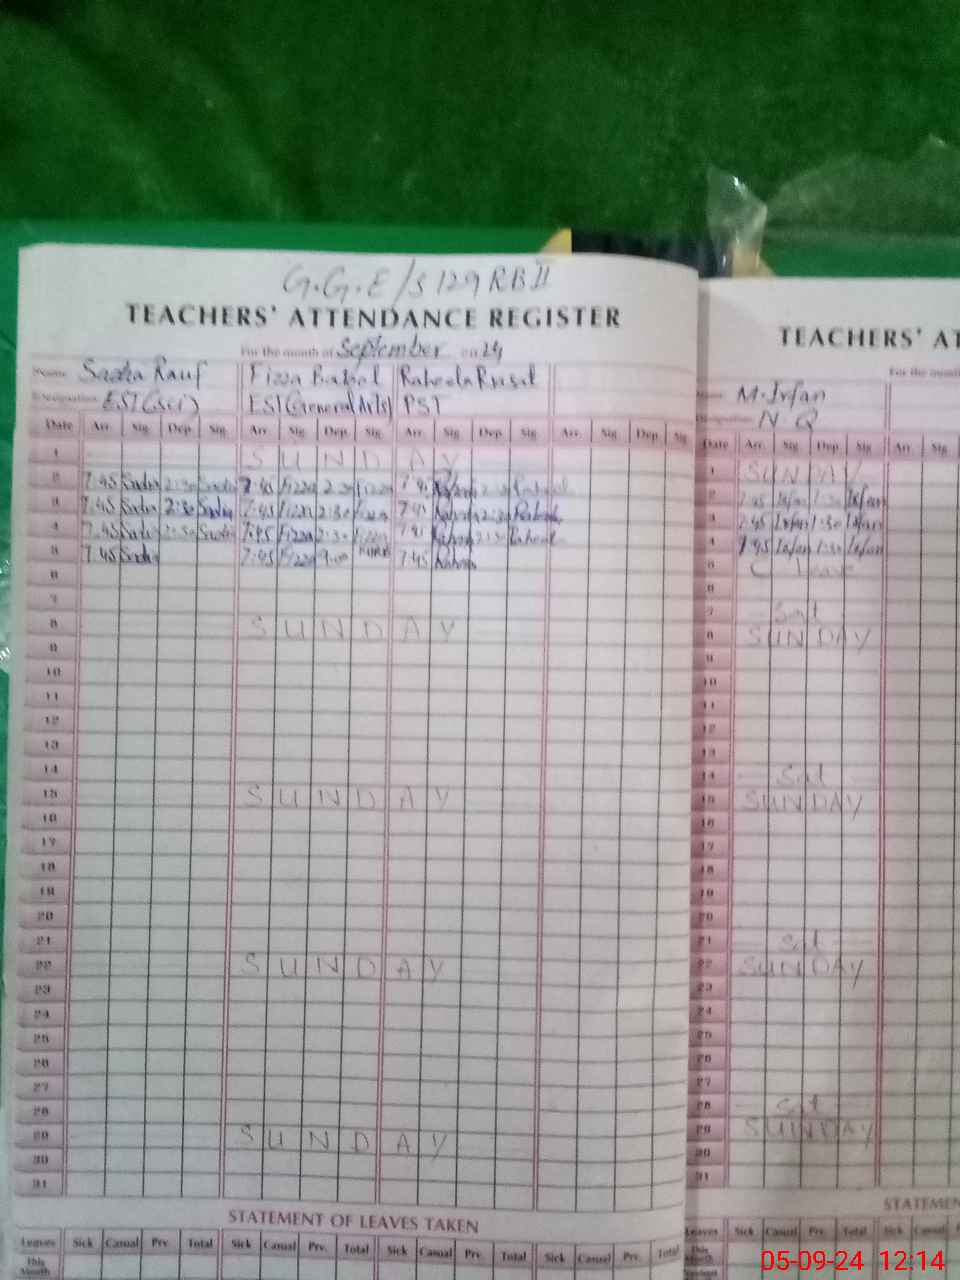 G.G.E/S 129 RB II
TEACHERS' ATTENDANCE REGISTER
For the month of September on 24
Name Rauf Fizza Raheela
Designation EST (Sci) EST (General Arts) PST
Date Arr. Sig. Dep. Sig. Arr. Sig. Dep. Sig. Arr. Sig. Dep. Sig. Arr. Sig. Dep. Sig.
1 SUNDAY
2 7:45 Sadia 2:30 Sadia 7:45 Fizza 2:30 Fizza 2:30
3 7:45 Sadia 2:30 Sadia 7:45 Fizza 2:30 Fizza 2:30
4 7:45 2:30 7:45 Fizza 2:30 Fizza 2:30
5 7:45 Sadia 7:45 Fizza 7:45
6
7
8 SUNDAY
9
10
11
12
13
14
15 SUNDAY
16
17
18
19
20
21
22 SUNDAY
23
24
25
26
27
28
29 SUNDAY
30
31
STATEMENT OF LEAVES TAKEN
Leaves Sick Casual Prv. Total Sick Casual Prv. Total Sick Casual Prv. Total Sick Casual Prv. Total
This Month
TEACHERS' AT
For the month
Name M. Irfan
Designation N.Q
Date Arr. Sig. Dep. Sig. Arr. Sig.
1 SUNDAY
2 7:45 Irfan 1:30 Irfan
3 7:45 Irfan 1:30 Irfan
4 7:45 Irfan 1:30 Irfan
5 C Leave
6
7 Sat
8 SUNDAY
9
10
11
12
13
14 Sat
15 SUNDAY
16
17
18
19
20
21 Sat
22 SUNDAY
23
24
25
26
27
28 Sat
29 SUNDAY
30
31
STATEMEN
Leaves Sick Casual Prv. Total Sick Casual
This Month
05-09-24 12:14